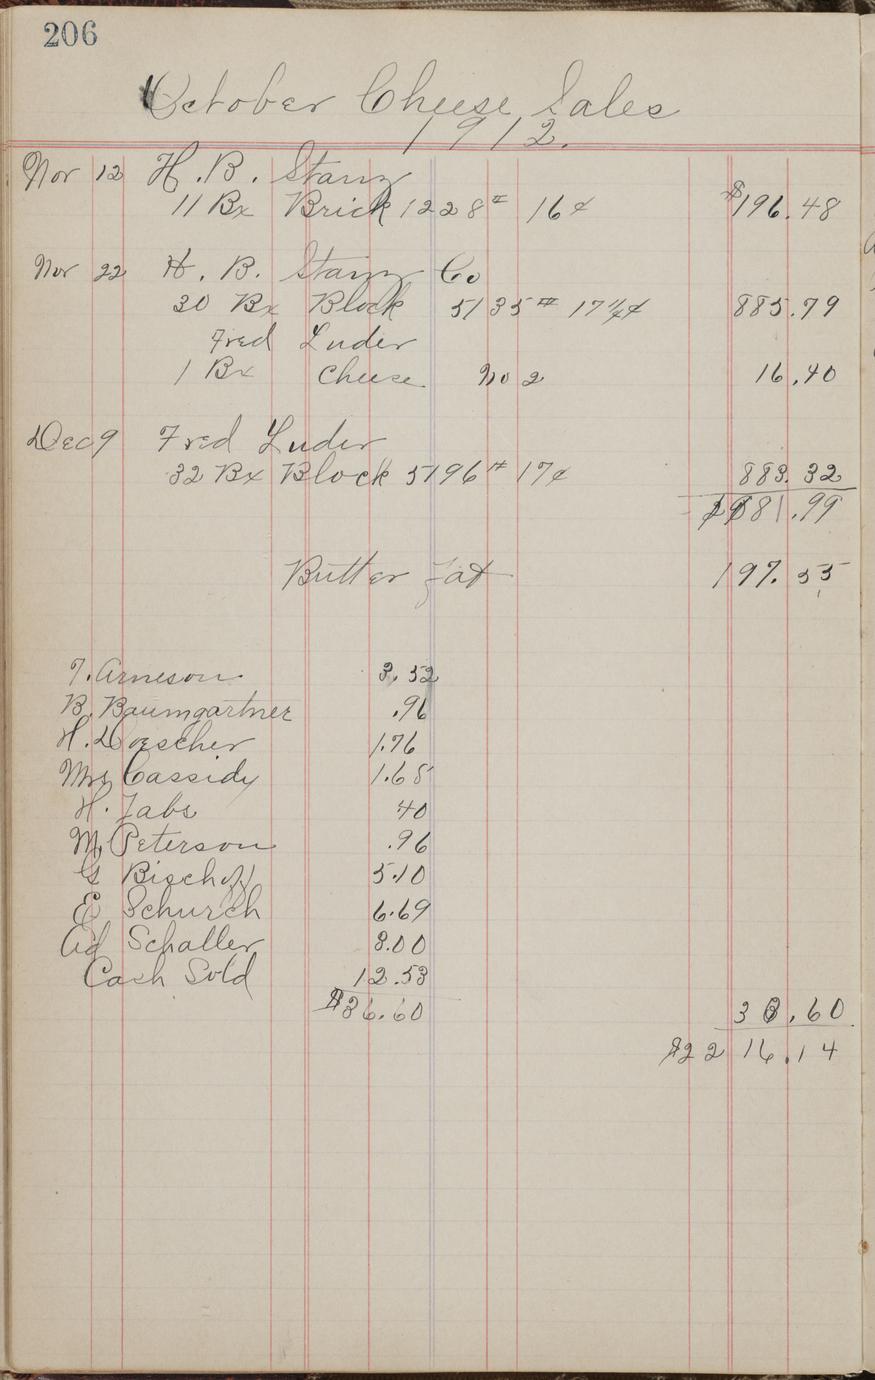 206
October Cheese Sales
1912.
Nov 12 H.B. Stanz
11 Bx Brick 1228# 16¢ $196.48
Nov 22 H. B. Stanz Co
30 Bx Block 5135# 17 1/4¢ 885.79
Fred Luder
1 Bx Cheese No 2 16.40
Dec 9 Fred Luder
32 Bx Block 5196# 17¢ 883.32
1981.99
Butter Fat 197.55
T. Arneson 3.52
B. Baumgartner .96
H. Doescher 1.76
Mrs Cassidy 1.68
H. Jabs 40
M. Peterson .96
G Bischoff 5.10
E Schurch 6.69
Ad Schaller 3.00
Cash Sold 12.53
$36.60 36.60
$2216.14